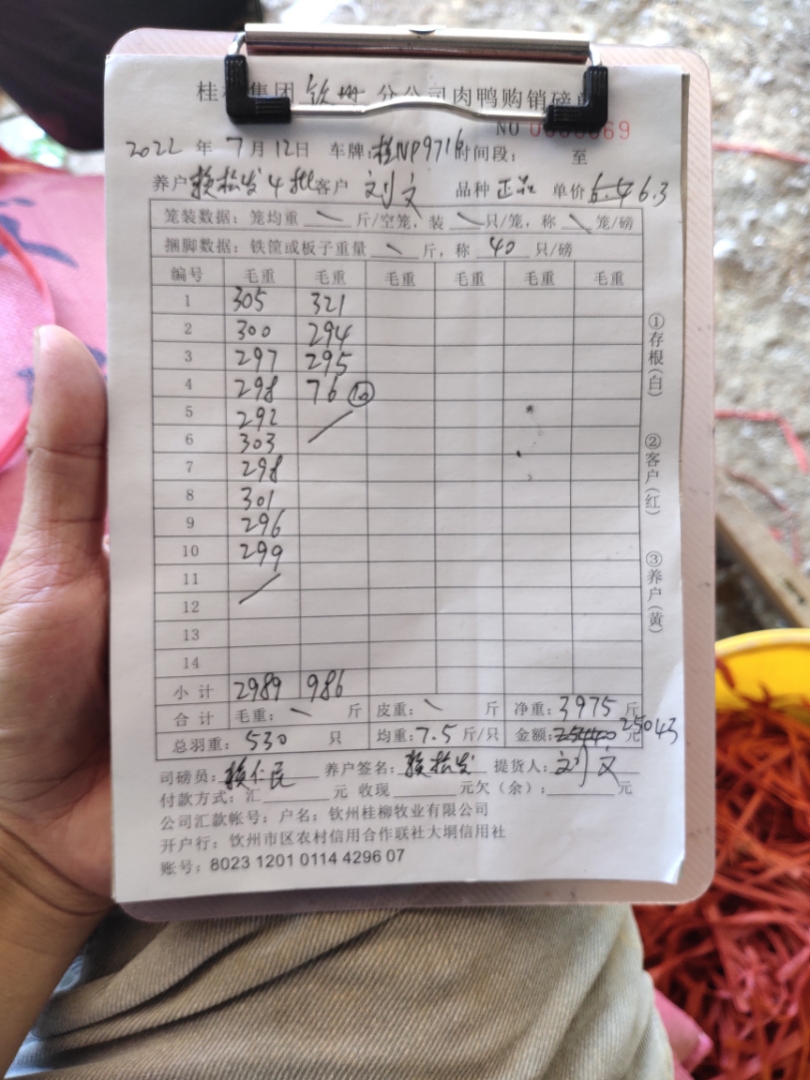 桂柳集团 钦州 分公司肉鸭购销磅单
NO 0000069
2022 年 7月12日 车牌:桂NP9716 时间段: 至
养户 赖松发4批 客户 刘文 品种 正品 单价 6.4 6.3
笼装数据:笼均重 \ 斤/空笼,装 \ 只/笼,称 \ 笼/磅
捆脚数据:铁筐或板子重量 \ 斤,称 40 只/磅
编号 毛重 毛重 毛重 毛重 毛重 毛重
1 305 321
2 300 294
3 297 295
4 298 76 ⑩
5 292
6 303
7 298
8 301
9 296
10 299
11
12
13
14
小计 2989 986
合计 毛重: \ 斤 皮重: \ 斤 净重:3975 斤
总羽重:530 只 均重:7.5 斤/只 金额:25440 元 25043
司磅员:赖仁民 养户签名:赖松发 提货人:刘文
付款方式:汇 元 收现 元欠(余): 元
公司汇款帐号:户名:钦州桂柳牧业有限公司
开户行:钦州市区农村信用合作联社大垌信用社
账号:8023 1201 0114 4296 07
①存根(白)
②客户(红)
③养户(黄)